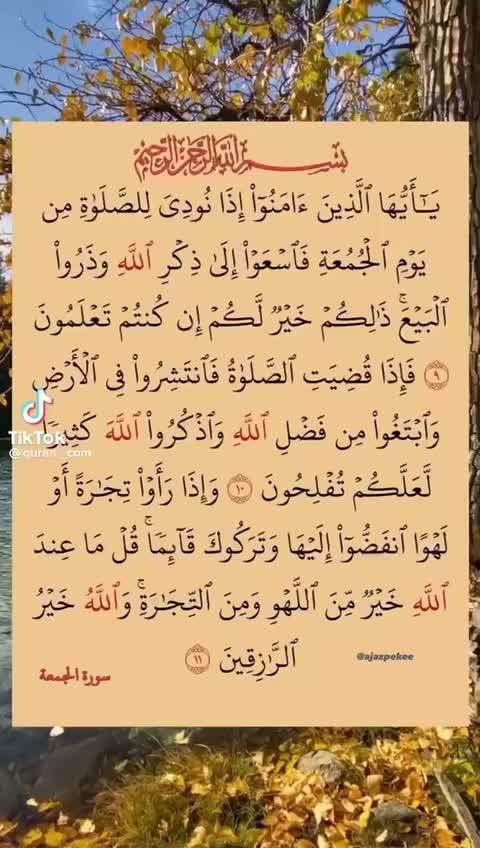 بسم الله الرحمن الرحيم
يَـٰٓأَيُّهَا ٱلَّذِينَ ءَامَنُوٓا۟ إِذَا نُودِىَ لِلصَّلَوٰةِ مِن
يَوْمِ ٱلْجُمُعَةِ فَٱسْعَوْا۟ إِلَىٰ ذِكْرِ ٱللَّهِ وَذَرُوا۟
ٱلْبَيْعَ ۚ ذَٰلِكُمْ خَيْرٌ لَّكُمْ إِن كُنتُمْ تَعْلَمُونَ
٩ فَإِذَا قُضِيَتِ ٱلصَّلَوٰةُ فَٱنتَشِرُوا۟ فِى ٱلْأَرْضِ
وَٱبْتَغُوا۟ مِن فَضْلِ ٱللَّهِ وَٱذْكُرُوا۟ ٱللَّهَ كَثِيرًا
لَّعَلَّكُمْ تُفْلِحُونَ ١٠ وَإِذَا رَأَوْا۟ تِجَـٰرَةً أَوْ
لَهْوًا ٱنفَضُّوٓا۟ إِلَيْهَا وَتَرَكُوكَ قَآئِمًا ۚ قُلْ مَا عِندَ
ٱللَّهِ خَيْرٌ مِّنَ ٱللَّهْوِ وَمِنَ ٱلتِّجَـٰرَةِ ۚ وَٱللَّهُ خَيْرُ
ٱلرَّٰزِقِينَ ١١
@ajazpekee
سورة الجمعة
TikTok
@quran_.com